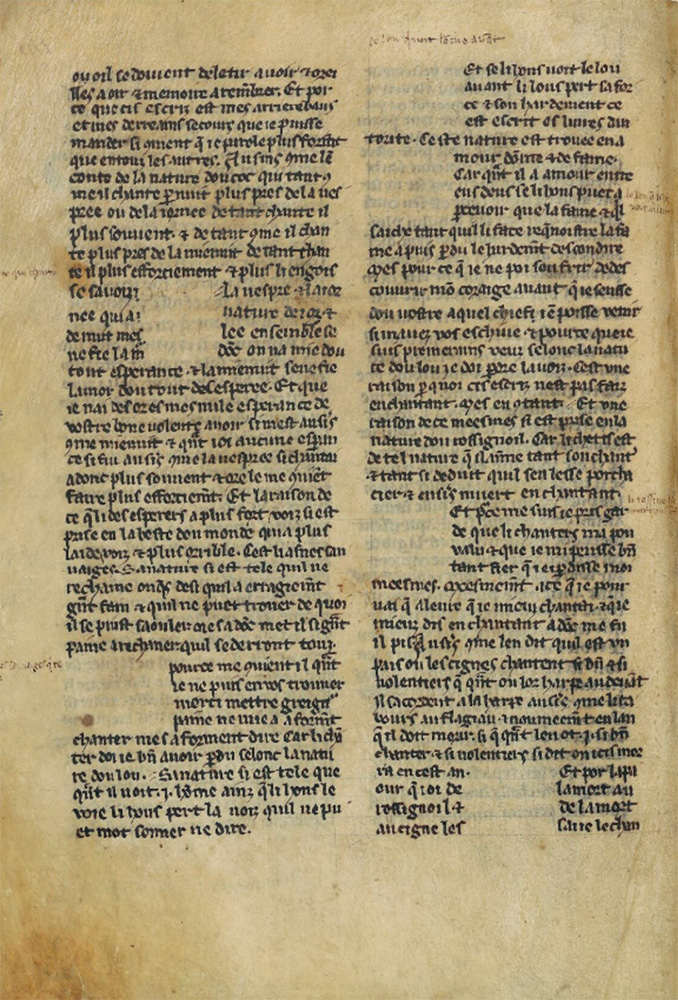 ou oil se doivent deleter avoir & orei
lles a oir & memoire a rembrer. Et por
ce que cis escriz est mes arriereban
et mes derreans secours que ie puisse
mander si ement q̄ ie parole plus fort
que entouz les autres. Ausins ꝯme lē
conte de la nature dou coc qui tant ꝯ
me il chante ꝑ nuit plus pres de la ves
pree ou de la iornee de tant chante il
plus souvent. & de tant ꝯme il chan
te plus pres de la mienuit de tant chan
te il plus efforciement & plus
se savoiz La vespre & laior
nee qui a nature de ior &
de nuit mes lee ensemble se
nefie lam dōt on na mie dou
tout esperance. & la mienuit senefie
lamor dou tout desesperee. Et que
ie nai des ores mes mile esperance de
vostre bone volente avoir si mest ausis
ꝯme mienuit & qn̄t ioi aucune espan
ce si fui ausis ꝯme la vespree si chantai
adonc plus souvent & ore le me ꝯvient
faire plus efforciemt. Et la raison de
ce q̄ li desesperez a plus fort voiz si est
prise en la beste dou monde qui a plus
laide voiz & plus orrible. Cest li asnes sau
vaiges. Sa nature si est tele quil ne
rechaine onqs desi quil a erragiemt
gn̄t fain & quil ne puet trover de quoi
il se puist saouler mes adōc met il si gn̄t
paine a rechaner quil se derront touz
pource me ꝯvient il qn̄t
ie ne puis en vos trouver
merci mettre greign
paine ne mie a a formt
chanter mes a forment dire Car li chā
ter doi ie bn̄ avoir ꝑdu selonc la natu
re dou lou. Sa nature si est tele que
qn̄t il voit .i. home ainz q̄ li hons le
voie li hons pert la voiz quil ne pu
et mot sonner ne dire.
Et se li hons voit le lou
avant li lous pert sa for
ce & son hardement ce
est escrit es livres dan
torite. Ceste nature est trovee en a
mour dōme & de fame.
Car qn̄t il a amour entre
eus deus se li hons puet a
ꝑcevoir que la fame &
saiche tant quil li face reqnoistre la fa
me a puis ꝑdu le hardemt descondire
Mes pour ce q̄ ie ne poi soufrir dedes
couvrir mō coraige avant q̄ ie seusse
dou vostre a quel chief iē poisse venir
si mavez vos eschive & pource que ie
suis premerains veuz selonc la natu
re dou lou ie doi ꝑdre la voiz. Cest une
raison ꝑ quoi cis escriz nest pas faiz
en chantant. Mes en ꝯtant. Et une
raison de ce meesmes si est prise en la
nature dou rossignoil. Car li chetis est
de tel nature q̄ il aime tant son chant
& tant si deduit quil sen lesse porcha
cier & ensis muert en chantant.
Et pce me suis ie pris gar
de que li chanters ma pou
valu & que ie mi puisse bn̄
tant fier q̄ ie ꝑdisse moi
meesmes. Meesmemt. ace q̄ ie pour
vai q̄ a leure q̄ ie mieuz chantai & q̄ ie
mieuz dis en chantant adōc me fu
il pis. Ausis ꝯme len dit quil est un
pais ou les cignes chantent si bn̄ & si
volentiers q̄ qn̄t on lor harpe au devāt
il sacordent a la harpe ausis ꝯme li ta
bours au flagiau & noumeemt en lan
q̄ il doit morir. si q̄ qn̄t len ot .i. si bn̄
chanter & si volentiers si dit on icis mor
ra en cest an. Et por la pa
our q̄ ioi de la mort au
rossignoil & de la mort
au cigne les saie le chan